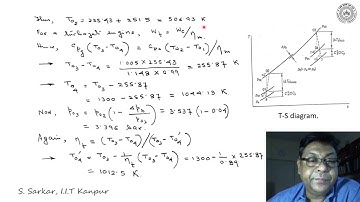 Thus, T02 = 255.43 + 251.5 = 506.93 K
For a turbojet engine, Wt = Wc/ηm
Thus, Cpg (T03 - T04) = Cpa (T02 - T01)/ηm
→ T03 - T04 = 1.005 × 255.43 / 1.148 × 0.99 = 255.87 K
→ T04 = T03 - 255.87
= 1300 - 255.87 = 1044.13 K
Now, P03 = P02 (1 - ΔPb/P02) = 3.537 (1 - 0.04)
= 3.396 bar.
Again, ηt = (T03 - T04)/(T03 - T04')
→ T04' = T03 - 1/ηt (T03 - T04) = 1300 - 1/0.89 × 255.87
= 1012.5 K.
T-S diagram.
S. Sarkar, I.I.T Kanpur